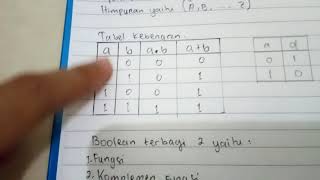 Himpunan yaitu (A, B, ... Z)
Tabel kebenaran:
a b a.b a+b
0 0 0
1 0 1
1 0 0 1
1 1 1 1
a d
0 1
1 0
Boolean terbagi 2 yaitu:
1. Fungsi
2. Komplemen Fungsi